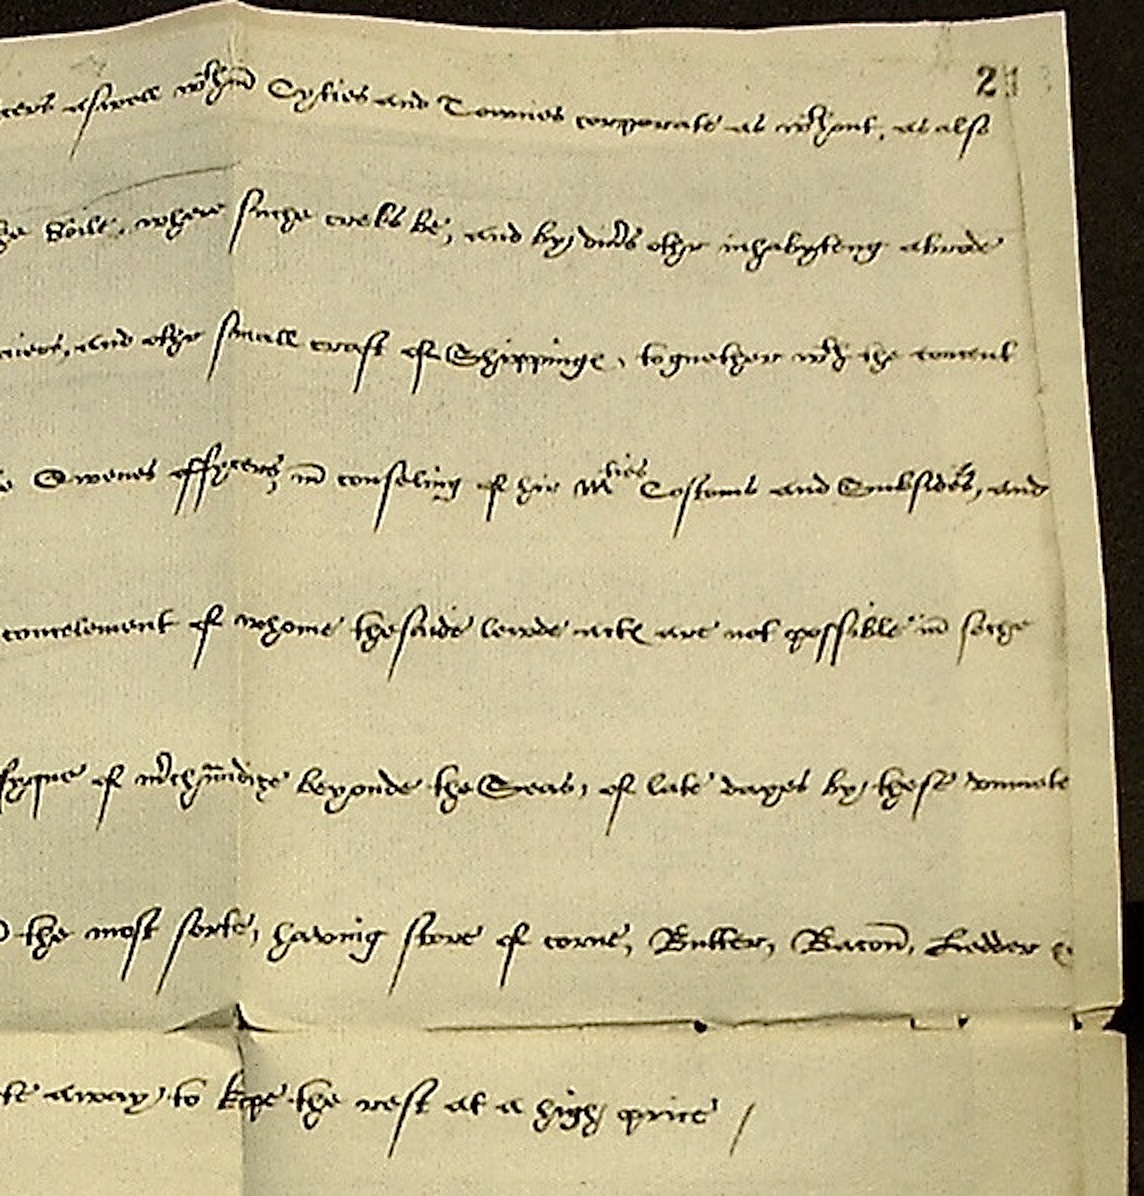 2
aswell wthin Cyties and Townes corporate as wthout, as also
Soile, where suche creks be, and by divrs othr inhabyteng abrode
and othr small craft of Shippinge, togueather wth the concent
Qwenes offycers, in conseling of hir Maties Costoms and Subsides, and
concelement of whome thesaide lewde acts are not possible in soche
of mrchandize beyonde the Seas, of late dayes by these
the most sorte, having store of corne, Butter, Bacon, Ledder &
away to kepe the rest at a high price /